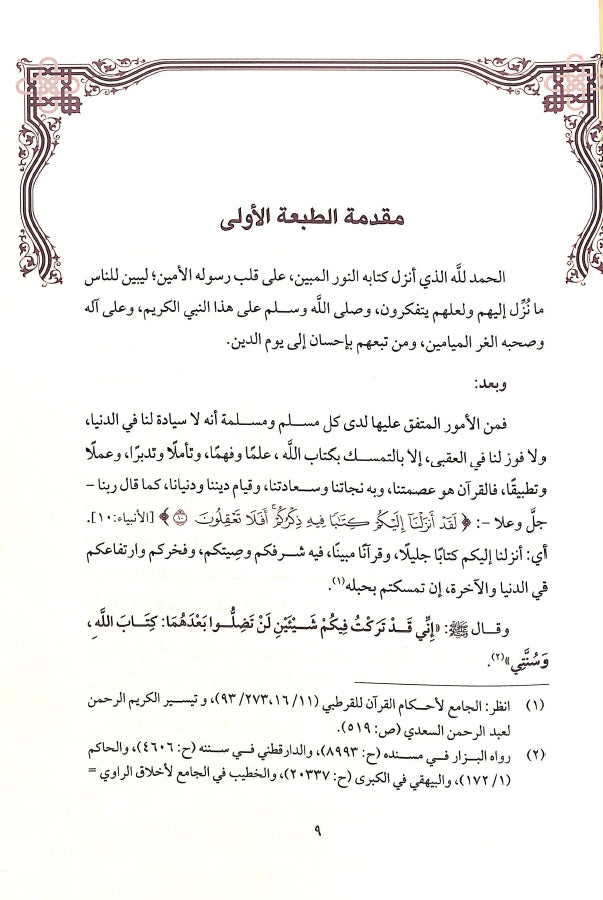 مقدمة الطبعة الأولى
الحمد للَّه الذي أنزل كتابه النور المبين، على قلب رسوله الأمين؛ ليبين للناس
ما نُزِّل إليهم ولعلهم يتفكرون، وصلى اللَّه وسلم على هذا النبي الكريم، وعلى آله
وصحبه الغر الميامين، ومن تبعهم بإحسان إلى يوم الدين.
وبعد:
فمن الأمور المتفق عليها لدى كل مسلم ومسلمة أنه لا سيادة لنا في الدنيا،
ولا فوز لنا في العقبى، إلا بالتمسك بكتاب اللَّه، علمًا وفهمًا، وتأملًا وتدبرًا، وعملًا
وتطبيقًا، فالقرآن هو عصمتنا، وبه نجاتنا وسعادتنا، وقيام ديننا ودنيانا، كما قال ربنا –
جلَّ وعلا –: ﴿ لَقَدْ أَنزَلْنَا إِلَيْكُمْ كِتَابًا فِيهِ ذِكْرُكُمْ ۖ أَفَلَا تَعْقِلُونَ ١٠ ﴾ [الأنبياء: ١٠].
أي: أنزلنا إليكم كتابًا جليلًا، وقرآنًا مبينًا، فيه شرفكم وصِيتكم، وفخركم وارتفاعكم
في الدنيا والآخرة، إن تمسكتم بحبله(١).
وقال ﷺ: «إِنِّي قَدْ تَرَكْتُ فِيكُمْ شَيْئَيْنِ لَنْ تَضِلُّوا بَعْدَهُمَا: كِتَابَ اللَّهِ،
وَسُنَّتِي»(٢).
(١) انظر: الجامع لأحكام القرآن للقرطبي (١١/ ٢٧٣، ١٦/ ٩٣)، و تيسير الكريم الرحمن
لعبد الرحمن السعدي (ص: ٥١٩).
(٢) رواه البزار في مسنده (ح: ٨٩٩٣)، والدارقطني في سننه (ح: ٤٦٠٦)، والحاكم
(١/ ١٧٢)، والبيهقي في الكبرى (ح: ٢٠٣٣٧)، والخطيب في الجامع لأخلاق الراوي =
٩